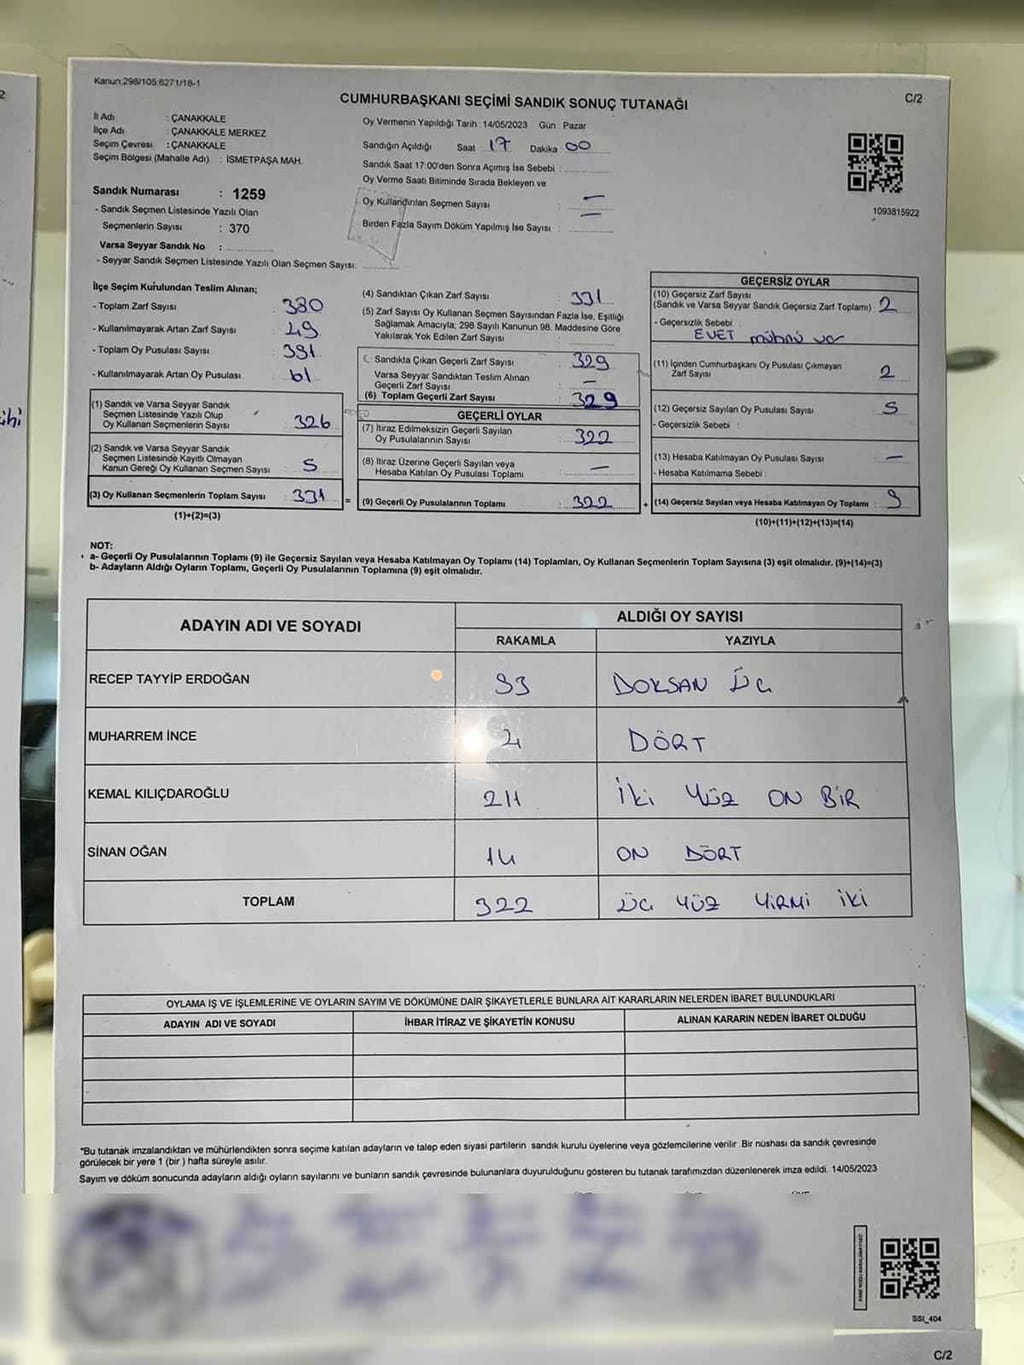 Kanun.298/105.6271/18-1
CUMHURBAŞKANI SEÇİMİ SANDIK SONUÇ TUTANAĞI
C/2
İl Adı : ÇANAKKALE
İlçe Adı : ÇANAKKALE MERKEZ
Seçim Çevresi : ÇANAKKALE
Seçim Bölgesi (Mahalle Adı) : İSMETPAŞA MAH.
Sandık Numarası : 1259
- Sandık Seçmen Listesinde Yazılı Olan
Seçmenlerin Sayısı : 370
Varsa Seyyar Sandık No :
- Seyyar Sandık Seçmen Listesinde Yazılı Olan Seçmen Sayısı:
Oy Vermenin Yapıldığı Tarih : 14/05/2023 Gün : Pazar
Sandığın Açıldığı Saat 17 Dakika 00
Sandık Saat 17:00'den Sonra Açımış İse Sebebi :
Oy Verme Saati Bitiminde Sırada Bekleyen ve
Oy Kullandırılan Seçmen Sayısı : —
Birden Fazla Sayım Döküm Yapılmış İse Sayısı : —
1093815922
İlçe Seçim Kurulundan Teslim Alınan;
- Toplam Zarf Sayısı : 380
- Kullanılmayarak Artan Zarf Sayısı : 49
- Toplam Oy Pusulası Sayısı : 391
- Kullanılmayarak Artan Oy Pusulası : 61
(1) Sandık ve Varsa Seyyar Sandık
Seçmen Listesinde Yazılı Olup
Oy Kullanan Seçmenlerin Sayısı : 326
(2) Sandık ve Varsa Seyyar Sandık
Seçmen Listesinde Kayıtlı Olmayan
Kanun Gereği Oy Kullanan Seçmen Sayısı : 5
(3) Oy Kullanan Seçmenlerin Toplam Sayısı : 331
(1)+(2)=(3)
(4) Sandıktan Çıkan Zarf Sayısı : 331
(5) Zarf Sayısı Oy Kullanan Seçmen Sayısından Fazla İse, Eşitliği
Sağlamak Amacıyla; 298 Sayılı Kanunun 98. Maddesine Göre
Yakılarak Yok Edilen Zarf Sayısı :
Sandıkta Çıkan Geçerli Zarf Sayısı : 329
Varsa Seyyar Sandıktan Teslim Alınan
Geçerli Zarf Sayısı : —
(6) Toplam Geçerli Zarf Sayısı : 329
GEÇERLİ OYLAR
(7) İtiraz Edilmeksizin Geçerli Sayılan
Oy Pusulalarının Sayısı : 322
(8) İtiraz Üzerine Geçerli Sayılan veya
Hesaba Katılan Oy Pusulası Toplamı : —
= (9) Geçerli Oy Pusulalarının Toplamı : 322
GEÇERSİZ OYLAR
(10) Geçersiz Zarf Sayısı
(Sandık ve Varsa Seyyar Sandık Geçersiz Zarf Toplamı) : 2
- Geçersizlik Sebebi :
EVET mührü var
(11) İçinden Cumhurbaşkanı Oy Pusulası Çıkmayan
Zarf Sayısı : 2
(12) Geçersiz Sayılan Oy Pusulası Sayısı : 5
- Geçersizlik Sebebi :
(13) Hesaba Katılmayan Oy Pusulası Sayısı : —
- Hesaba Katılmama Sebebi :
+ (14) Geçersiz Sayılan veya Hesaba Katılmayan Oy Toplamı : 9
(10)+(11)+(12)+(13)=(14)
NOT:
a- Geçerli Oy Pusulalarının Toplamı (9) ile Geçersiz Sayılan veya Hesaba Katılmayan Oy Toplamı (14) Toplamları, Oy Kullanan Seçmenlerin Toplam Sayısına (3) eşit olmalıdır. (9)+(14)=(3)
b- Adayların Aldığı Oyların Toplamı, Geçerli Oy Pusulalarının Toplamına (9) eşit olmalıdır.
ADAYIN ADI VE SOYADI
ALDIĞI OY SAYISI
RAKAMLA YAZIYLA
RECEP TAYYİP ERDOĞAN 93 DOKSAN ÜÇ
MUHARREM İNCE 4 DÖRT
KEMAL KILIÇDAROĞLU 211 İki YÜZ ON BİR
SİNAN OĞAN 14 ON DÖRT
TOPLAM 322 ÜÇ YÜZ YİRMİ İKİ
OYLAMA İŞ VE İŞLEMLERİNE VE OYLARIN SAYIM VE DÖKÜMÜNE DAİR ŞİKAYETLERLE BUNLARA AİT KARARLARIN NELERDEN İBARET BULUNDUKLARI
ADAYIN ADI VE SOYADI İHBAR İTİRAZ VE ŞİKAYETİN KONUSU ALINAN KARARIN NEDEN İBARET OLDUĞU
*Bu tutanak imzalandıktan ve mühürlendikten sonra seçime katılan adayların ve talep eden siyasi partilerin sandık kurulu üyelerine veya gözlemcilerine verilir. Bir nüshası da sandık çevresinde
görülecek bir yere 1 (bir) hafta süreyle asılır.
Sayım ve döküm sonucunda adayların aldığı oyların sayılarını ve bunların sandık çevresinde bulunanlara duyurulduğunu gösteren bu tutanak tarafımızdan düzenlenerek imza edildi. 14/05/2023
SSI_404
C/2